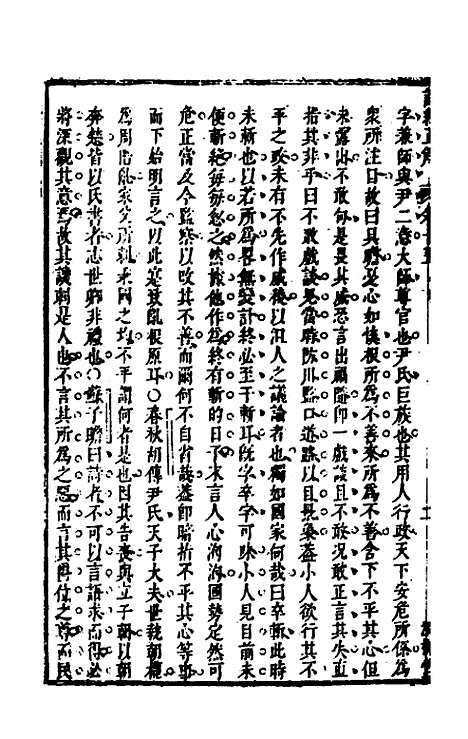 字兼師與尹二意大師尊官也尹氏巨族也其用人行政天下安危所係爲
衆所注目故曰具瞻憂心如惔根所爲不善來所爲不善含下不平其心但
未露出不敢句是畏其威恐言出禍隨仰一戲談且不敢况敢正言其失直
指其非乎曰不敢戲談見當時除川監口道路以目景象蓋小人欲行其不
平之政未有不先作威後以汨人之議論者也獨如國家何哉曰卒斬此時
未斬也以若所爲畧無變計終必至于斬耳旣字卒字可味小人見目前未
便斬絕每每忽之然據他作爲終有斬的日子不言人心洶洶國勢定然可
危正當及今監察以改其不善而爾何不自省哉蓋即暗指不平其心等
而下始明言之以此實致亂根原耳○春秋胡傳尹氏天子大夫世執朝權
爲周階亂家父所刺秉國之均不平謂何者是也因其告喪與立子朝以朝
奔楚皆以氏書者志世卿非禮也○蘇子瞻曰詩者不可以言語求而得必
將深觀其意焉故其譏刺是人也不言其所爲之惡而言其爵位之尊而民